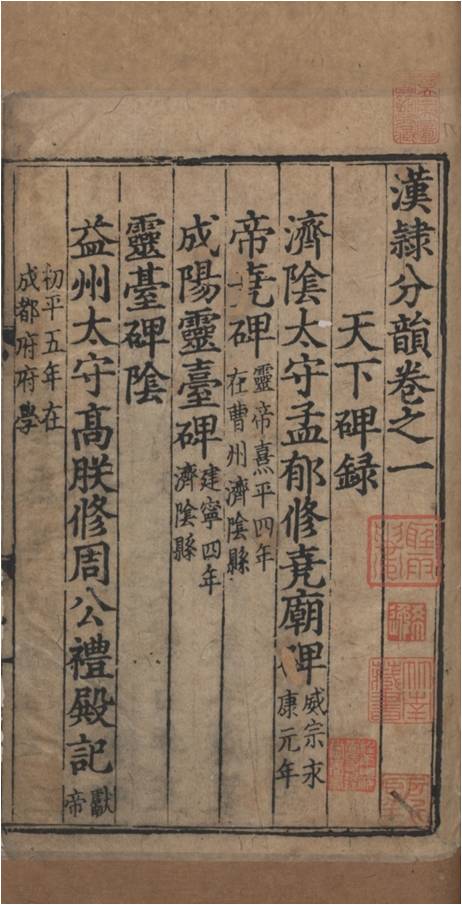 漢隷分韻卷之一
天下碑録
濟陰太守孟郁修堯廟碑 威宗永康元年
帝堯碑 靈帝熹平四年在曹州濟陰縣
成陽靈臺碑 建寧四年濟陰縣
靈臺碑陰
益州太守高朕修周公禮殿記 獻帝
初平五年在成都府府學